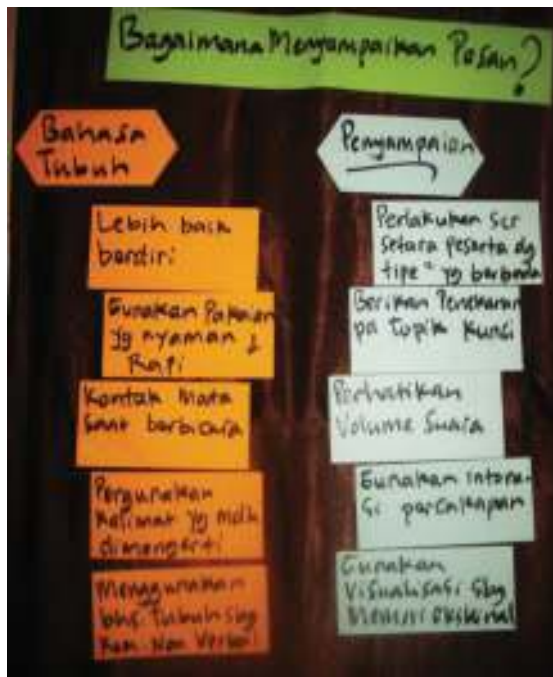 Bagaimana Menyampaikan Pesan?
Bahasa
Tubuh
Lebih baik
berdiri
Gunakan Pakaian
yg nyaman &
Rapi
Kontak Mata
saat berbicara
Pergunakan
Kalimat yg mdh
dimengerti
Menggunakan
bhs. Tubuh sbg
Kom. Non Verbal
Penyampaian
Perlakukan scr
setara peserta dg
tipe² yg berbeda
Berikan Penekanan
pa Topik Kunci
Perhatikan
Volume Suara
Gunakan intona-
si percakapan
Gunakan
Visualisasi sbg
Memori eksternal